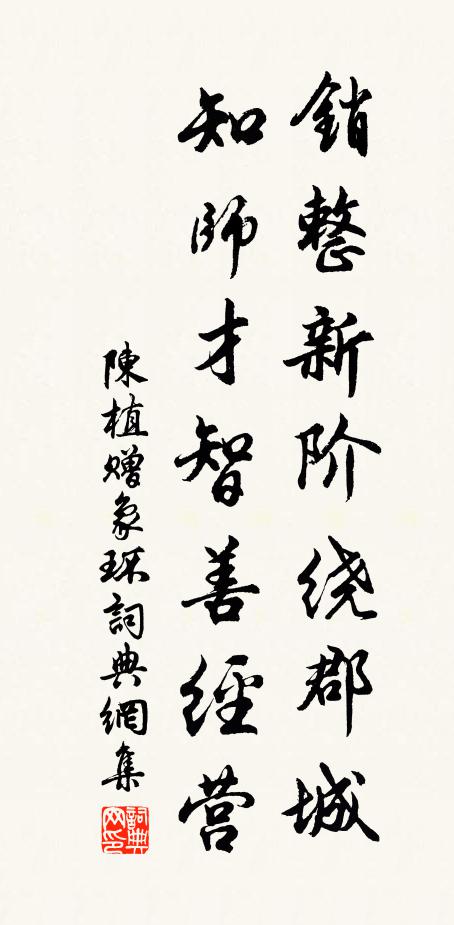 銷整新阶绕郡城
知師才智善經营
陳植赠象環詞典網集
詞典网印